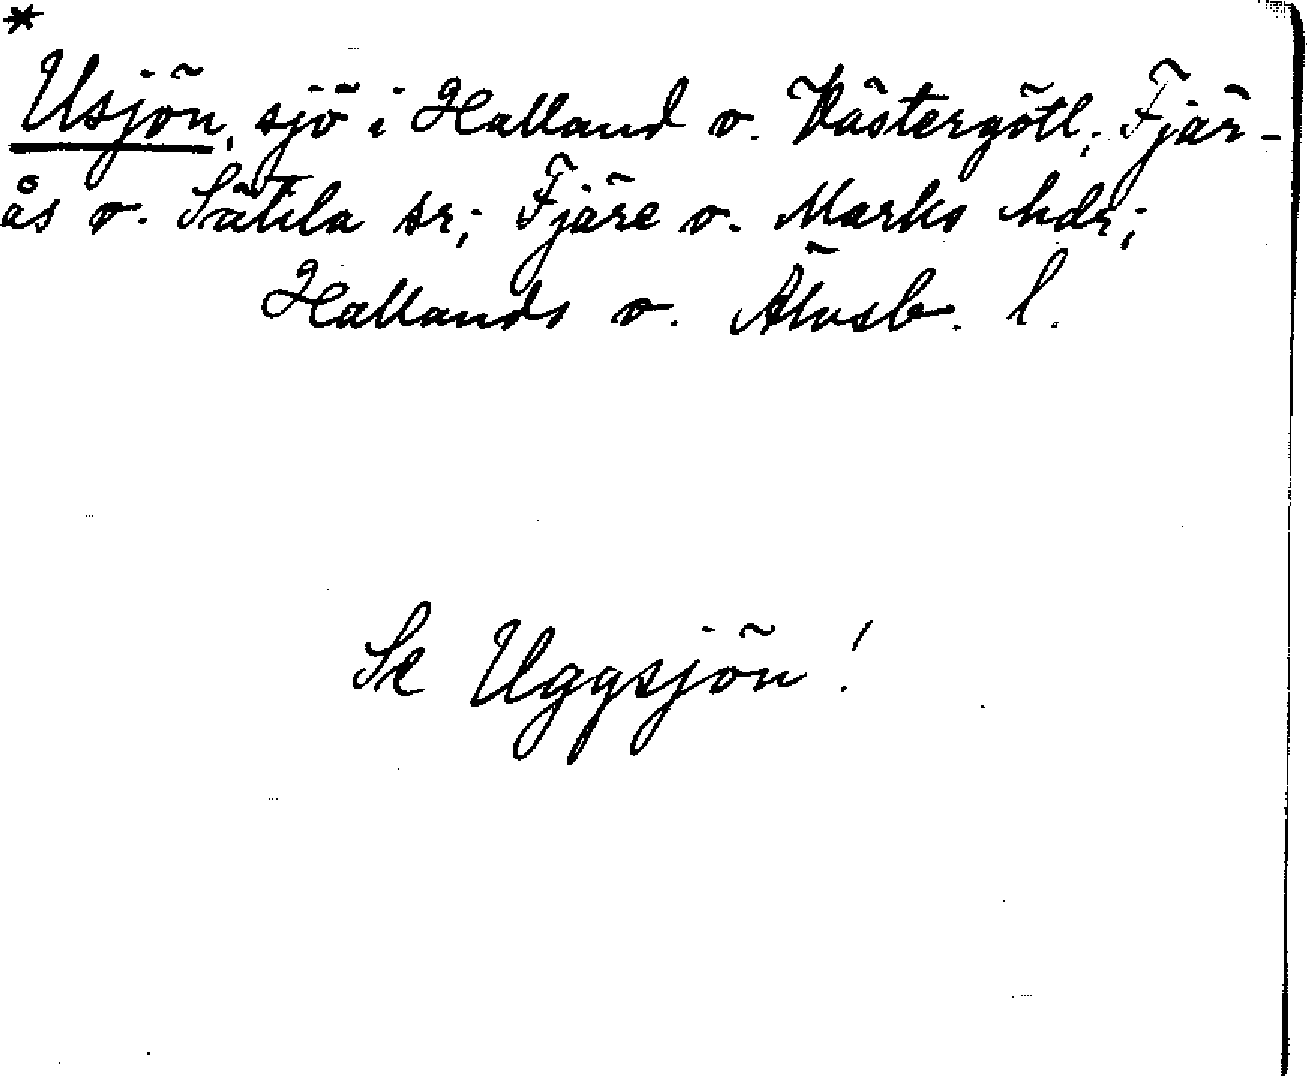 *
Usjön, sjö i Halland o. Västergötl.; Fjär-
ås o. Sätila sr; Fjäre o. Marks hdr;
Hallands o. Älvsb. l.
Se Uggsjön!